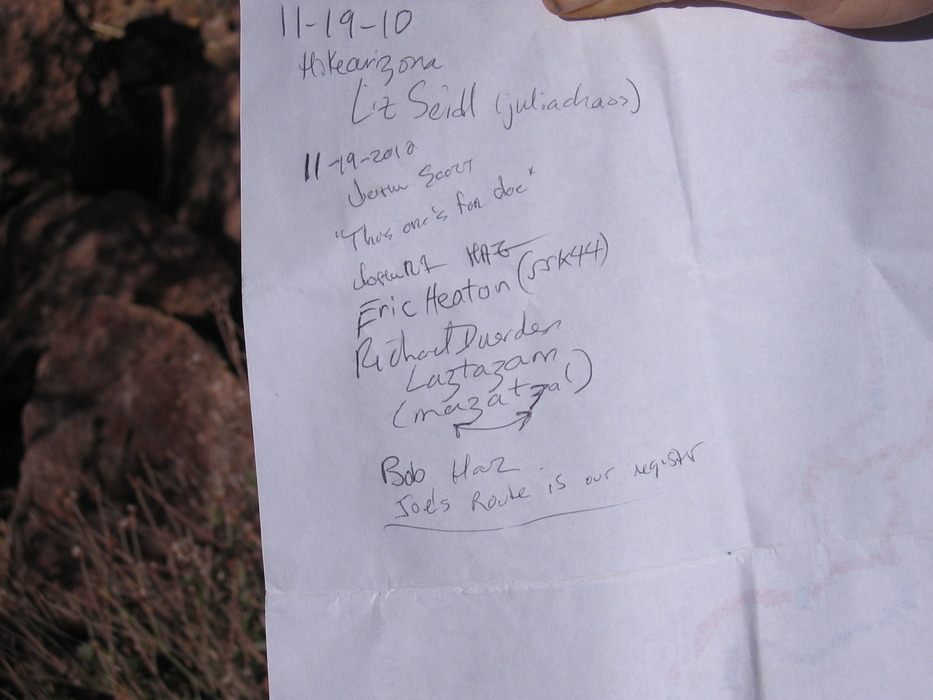 11-19-10
Hikearizona
Liz Seidl (juliachaos)
11-19-2010
Scott
"This one's for doc"
HAZ
Eric Heaton (ssk44)
Richard Duerden
Laztazam
(mazatzal)
Bob Haz
Joe's Route is our register